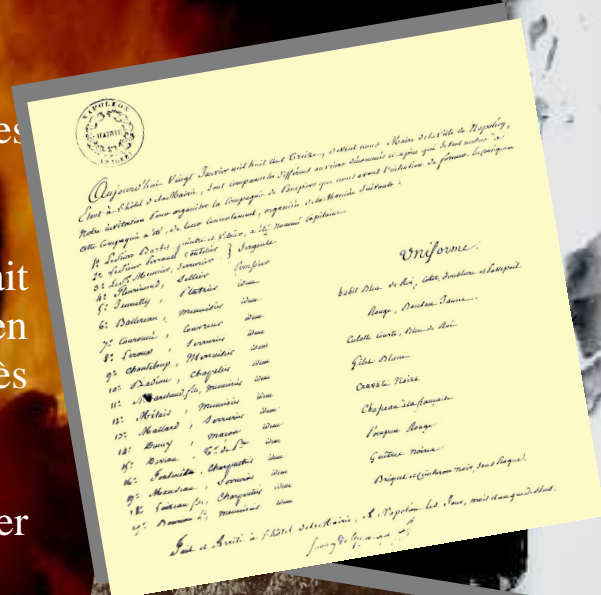 es
ait
en
ès
er
NAPOLEON
MAIRIE
Aujourd'hui Vingt Janvier mil huit cent Treize, devant nous Maire de la Ville de Napoléon,
Etant à l'hôtel de la Mairie, sont comparus les différents ouvriers dénommés ci-après qui
Notre invitation Pour organiser la Compagnie de Pompiers que nous avons l'intention de former.
cette Compagnie a été, de leur Consentement, organisée de la Manière Suivante:
1° Le Sieur Barbe, peintre et Vitrier, a été nommé Capitaine
2° Le Sieur coutelier } Sergents
3° Le Sr. Meunier, Serrurier
4° Sellier Pompier
5° Platrier idem
6° Ballereau, menuisier idem
7° couvreur idem
8° Leroux, Serrurier idem
9° Chanteloup, Menuisier idem
10° Badiou, Chapelier idem
11° Marchand fils, menuisier idem
12° Métais, Menuisier idem
13° Mallard, Serrurier idem
14° macon idem
15° idem
16° Charpentier idem
17° Serrurier idem
18° Charpentier idem
19° menuisier idem
Uniforme.
habit Bleu de Roi, Colet, doublure et Passepoil
Rouge, Bouton Jaune.
Culotte Courte, Bleu de Roi
Gilet Blanc
Cravate Noire
Chapeau à la française
Pompon Rouge
Guêtres noires
Briquet et Ceinturon noir, sans Plaque.
Fait et Arrêté à l'hôtel de la Mairie, A Napoléon les Jour, mois et an que dessus.